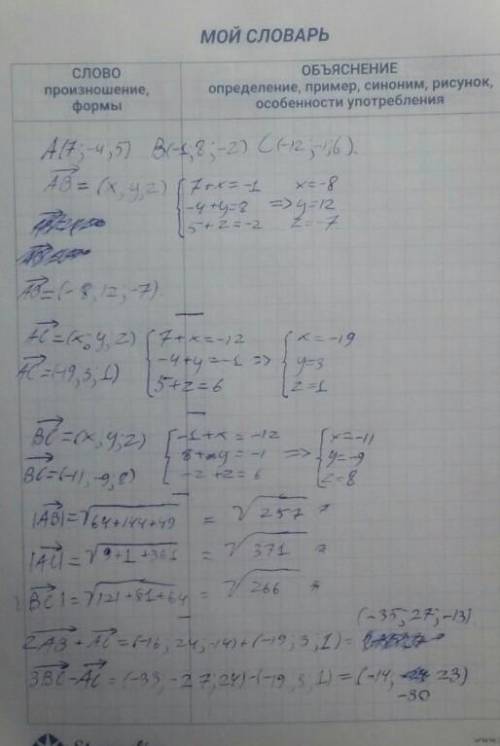 МОЙ СЛОВАРЬ
СЛОВО
произношение,
формы
ОБЪЯСНЕНИЕ
определение, пример, синоним, рисунок,
особенности употребления
A(7;-4,5) B(-1,8;-2) C(-12;-1,6).
AB = (x, y, z) { 7+x=-1 x=-8
-4+y=8 => y=12
5+z=-2 z=-7
AB=(-8,12,-7)
AC=(x,y,z) { 7+x=-12 { x=-19
AC=(-19,3,1) -4+y=-1 => y=3
5+z=6 z=1
BC=(x,y,z) { -1+x=-12 { x=-11
BC=(-11,-9,8) 8+y=-1 => y=-9
-2+z=6 z=8
|AB|=√64+144+49 = √257
|AC|=√9+1+361 = √371
|BC|=√121+81+64 = √266
(-35; 27; -13)
2AB+AC=(-16, 24,-14)+(-19,3,1)=
3BC-AC=(-33,-27,24)-(-19,3,1)=(-14, 23)
-30